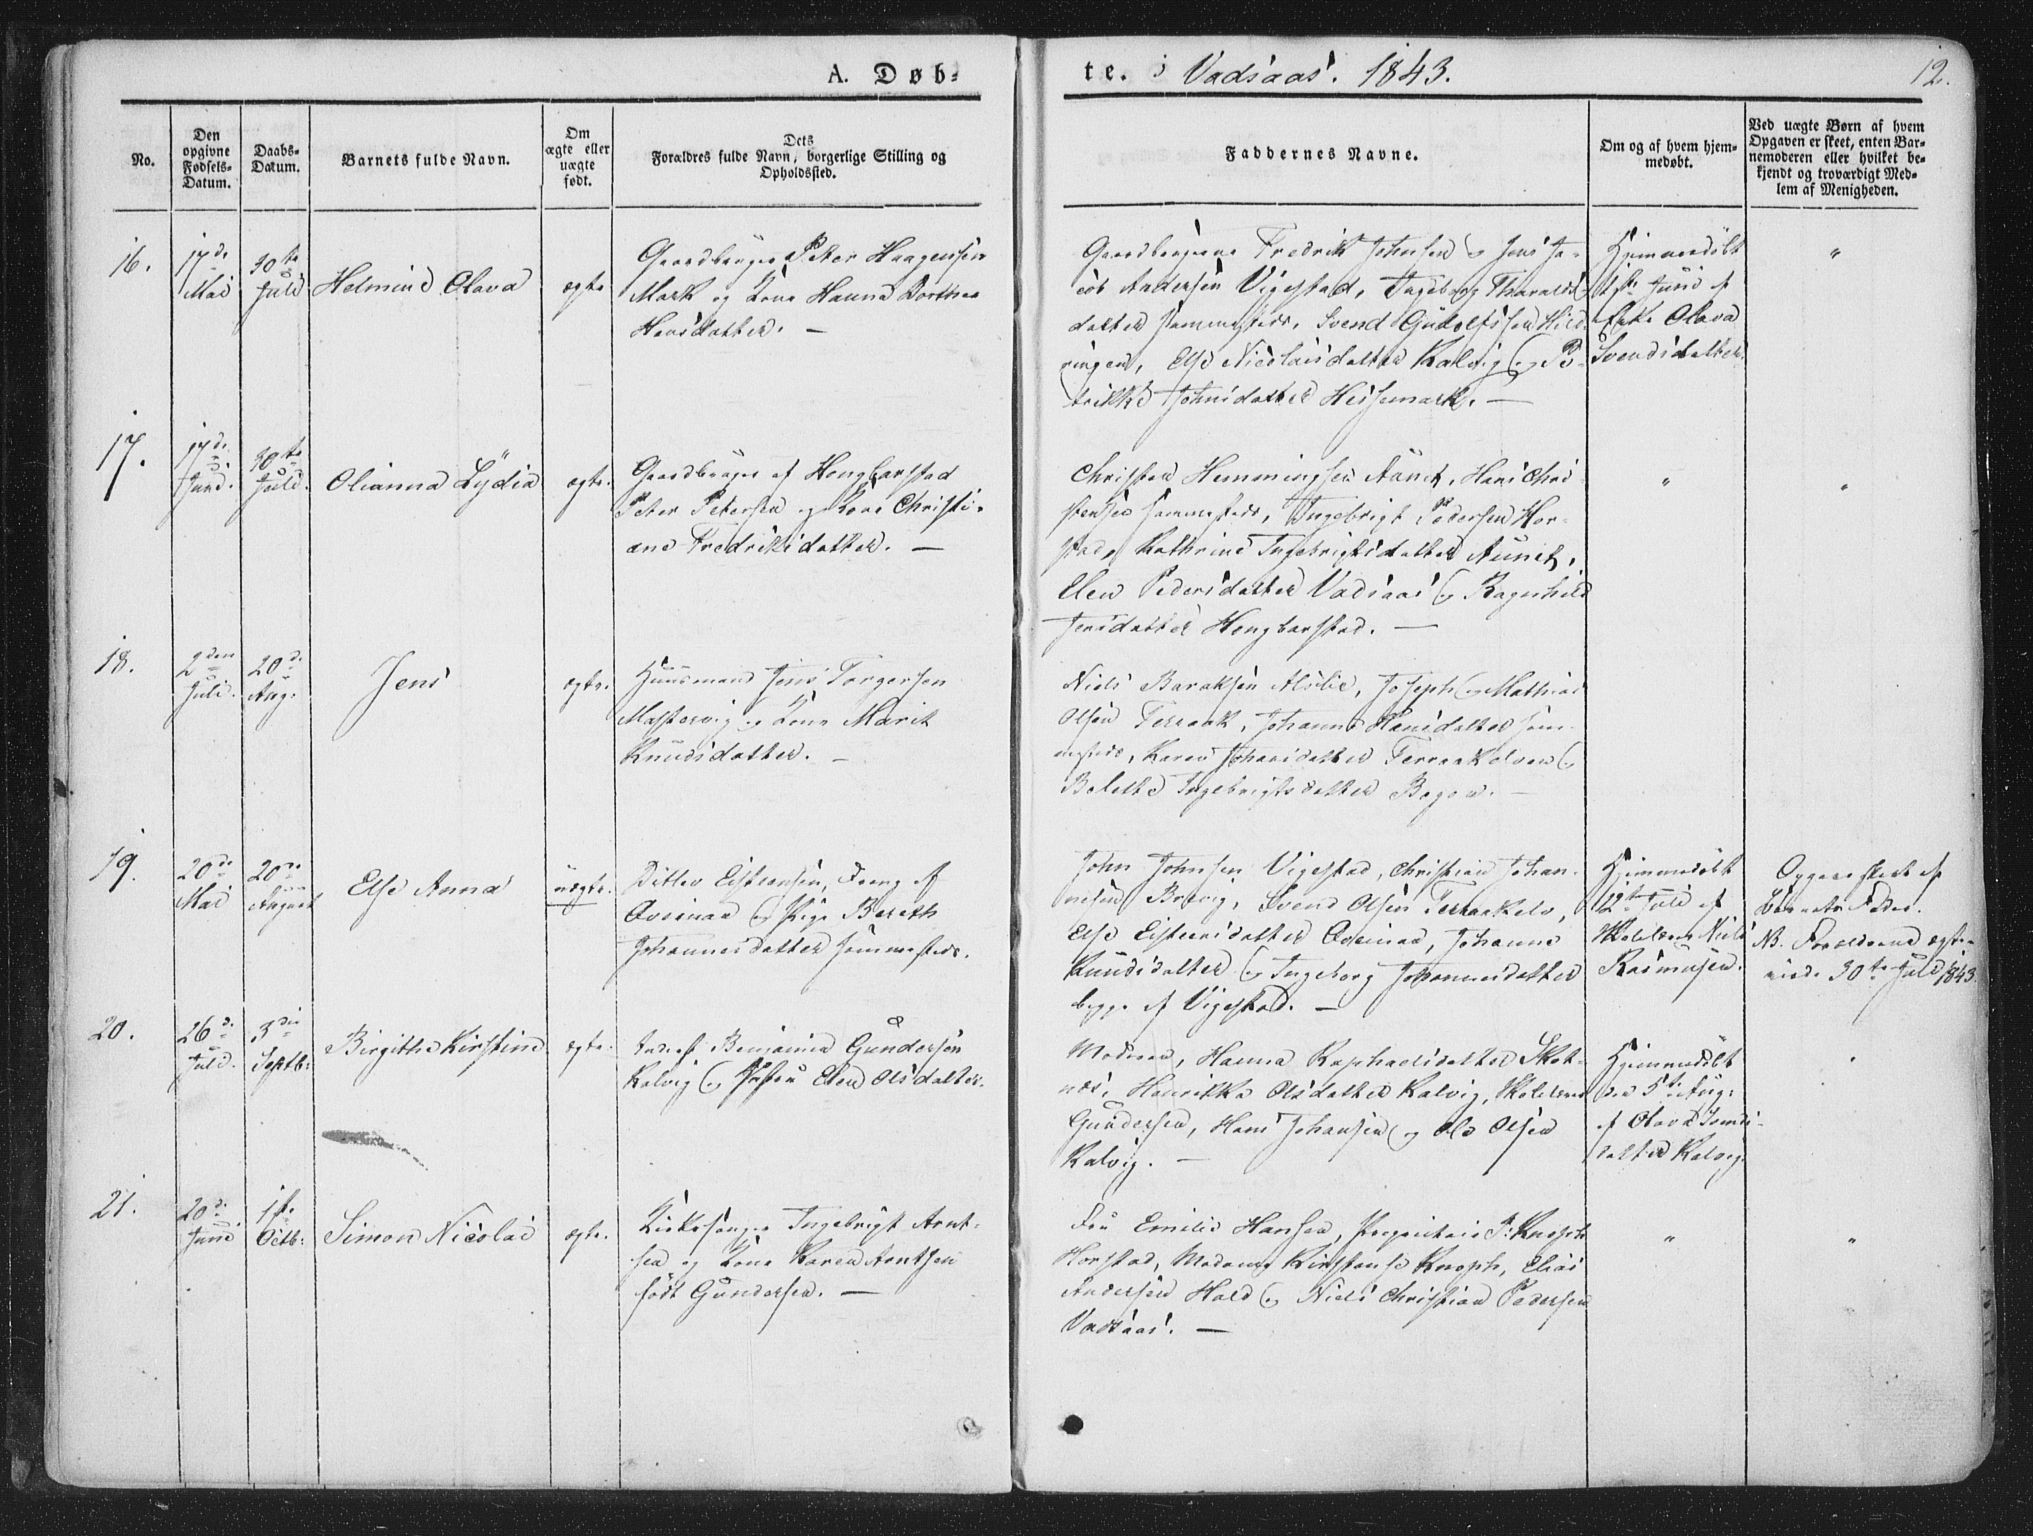 A. Døb=
te. i Vadsaas. 1843.
12.
No.
Den
opgivne
Fødsels-
Datum.
Daabs-
Datum.
Barnets fulde Navn.
Om
ægte eller
uægte
født.
Dets
Forældres fulde Navn, borgerlige Stilling og
Opholdssted.
Faddernes Navne.
Om og af hvem hjem-
medøbt.
Ved uægte Børn af hvem
Opgaven er skeet, enten Bar-
nemoderen eller hvilket be-
kjendt og troværdigt Med-
lem af Menigheden.
16.
17de
Mai
30te
Juli
Helmine Olava
ægte
Gaardbruger Peter Haagensen
Mark og Kone Hanna Dorthea
Hansdatter. —
Gaardbrugerne Fredrik Johnsen og Jens Ja-
cob Andersen Vigestad, Ingeborg Tharalds-
datter sammesteds, Svend Gudolfsen Hild-
ringen, Else Nicolaisdatter Kalvig og Pe-
trikke Johnsdatter Heissemark. —
Hjemmedøbt
Juni af
Enke Olava
Svendsdatter
"
17.
17de
Juni.
30te
Juli.
Olianna Lydia
ægte.
Gaardbruger af Hongbarstad
Peter Petersen og Kone Christi-
ane Fredriksdatter. —
Christen Hemmingsen Aunet, Hans Chri-
stensen sammesteds, Ingebrigt Pedersen Hor-
stad, Kathrine Ingebrigtsdatter Aunet,
Elen Pedersdatter Vadsaas og Ragnhild
Jensdatter Hongbarstad. —
"
"
18.
2den
Juli.
20de
Aug.
Jens
ægte.
Huusmand Jens Torgersen
Mastervig og Kone Marit
Knudsdatter. —
Niels Baraksen Alslie, Joseph og Mathias
Olsen Terraak, Johanna Hansdatter sam-
mesteds, Karen Johansdatter Terraakelven og
Belethe Ingebrigtsdatter Bogen. —
19.
20de
Mai
20de
August
Else Anna
uægte.
Ditlev Eistensen, Dreng af
Avsinaa og Pige Bereth
Johannesdatter sammesteds.
John Johnsen Vigestad, Christian Johan-
nesen Botvig, Svend Olsen Terraakelv,
Else Eistensdatter Avsinaa, Johanna
Knudsdatter og Ingeborg Johannesdatter
begge af Vigestad. —
Hjemmedøbt
12te Juli af
Skolelærer Niels
Rasmusen.
Opgave skeet af
Barnets Fader.
NB. Forældrene ægte-
viede 30te Juli 1843.
20.
26de
Juli.
3die
Septb:
Birgithe Kirstine
ægte.
Benjamin Gundersen
Kalvig og Elen Olsdatter.
Madam, Hanna Raphaelsdatter Skot-
næs, Henrikka Olsdatter Kalvig, Skolelærer
Gundersen, Hans Johansen og Ole Olsen
Kalvig. —
Hjemmedøbt
den 5te Aug:
af Olava Svends-
datter Kalvig.
21.
20de
Juni
1ste
Octb:
Simon Nicolai
ægte.
Kirkesanger Ingebrigt Arnt-
sen og Kone Karen Arntsen
født Gundersen. —
Fru Emilie Hansen, Proprietair P. Knoph
Horstad, Madame Kirstense Knoph, Elias
Andersen Hald og Niels Christian Pedersen
Vadsaas. —
"
"